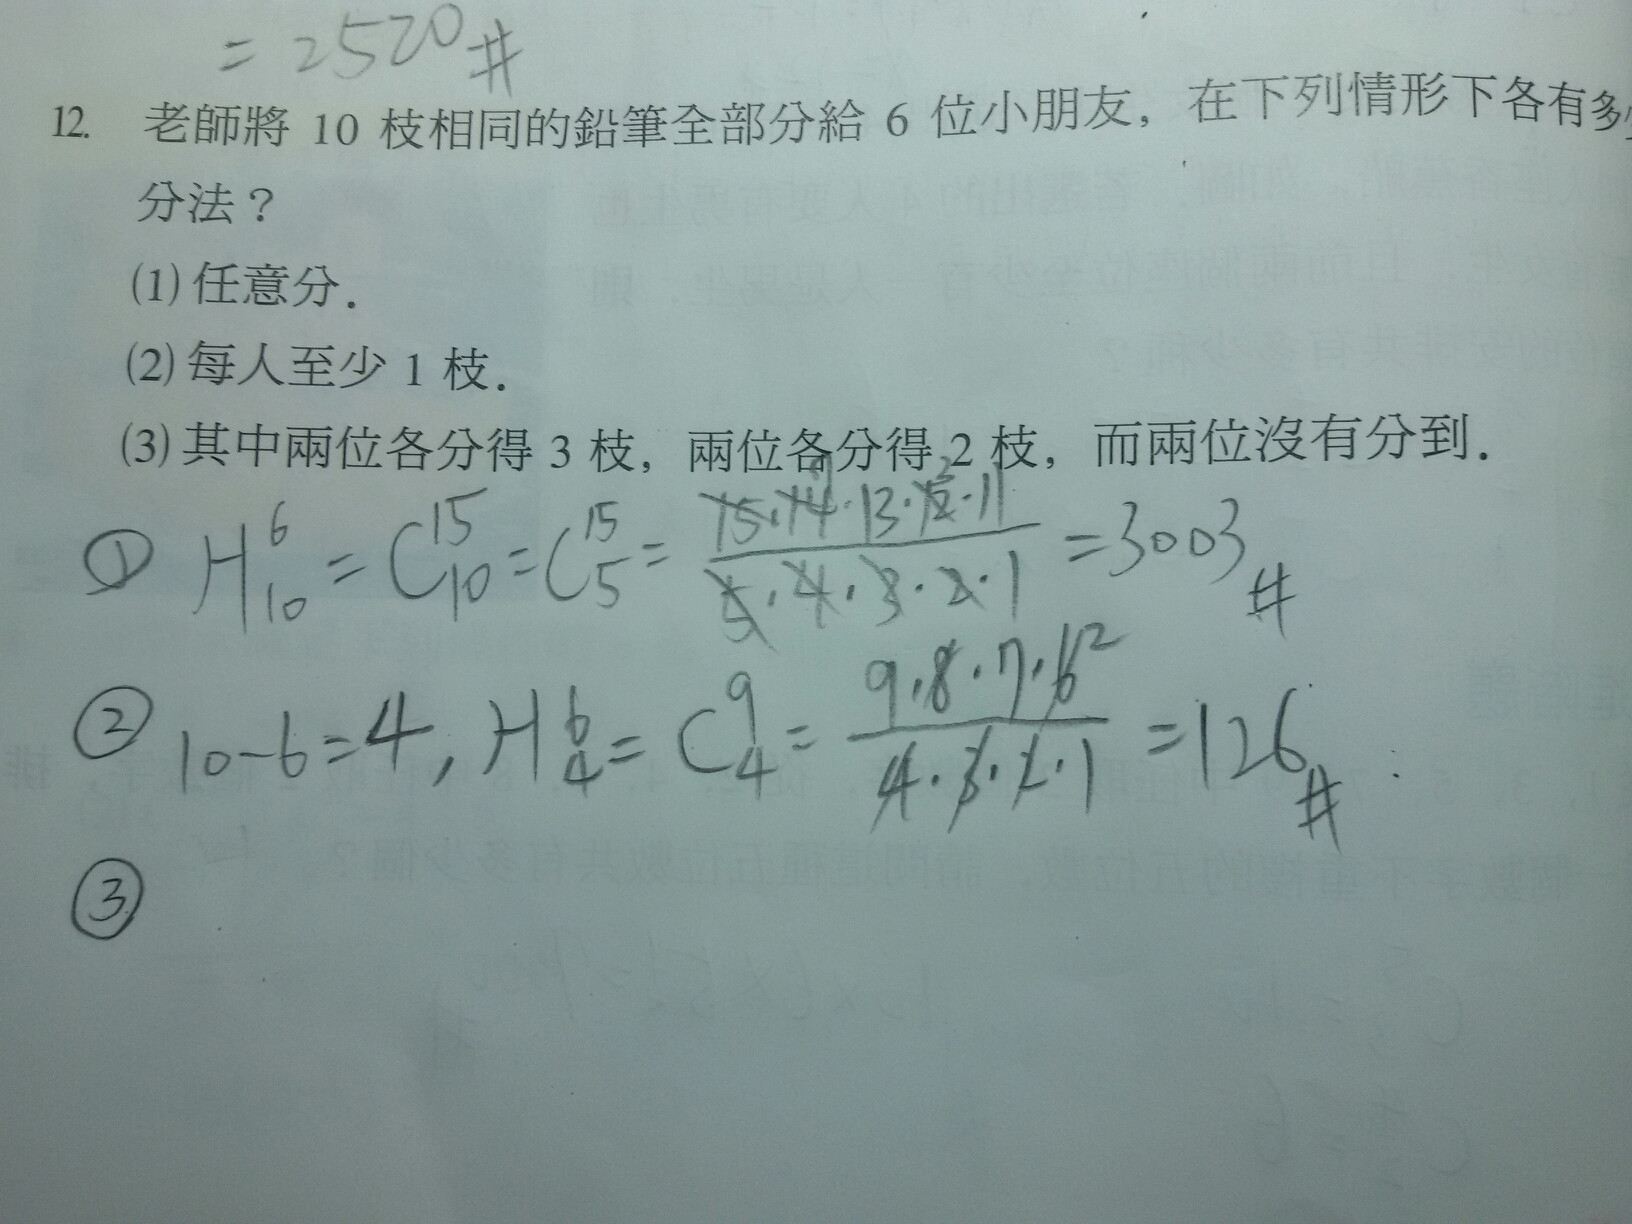 = 2520 #
12. 老師將 10 枝相同的鉛筆全部分給 6 位小朋友，在下列情形下各有多
分法？
(1) 任意分．
(2) 每人至少 1 枝．
(3) 其中兩位各分得 3 枝，兩位各分得 2 枝，而兩位沒有分到．
① H^6_10 = C^15_10 = C^15_5 = (15·14·13·12·11)/(5·4·3·2·1) = 3003 #
② 10-6=4, H^6_4 = C^9_4 = (9·8·7·6)/(4·3·2·1) = 126 #
③